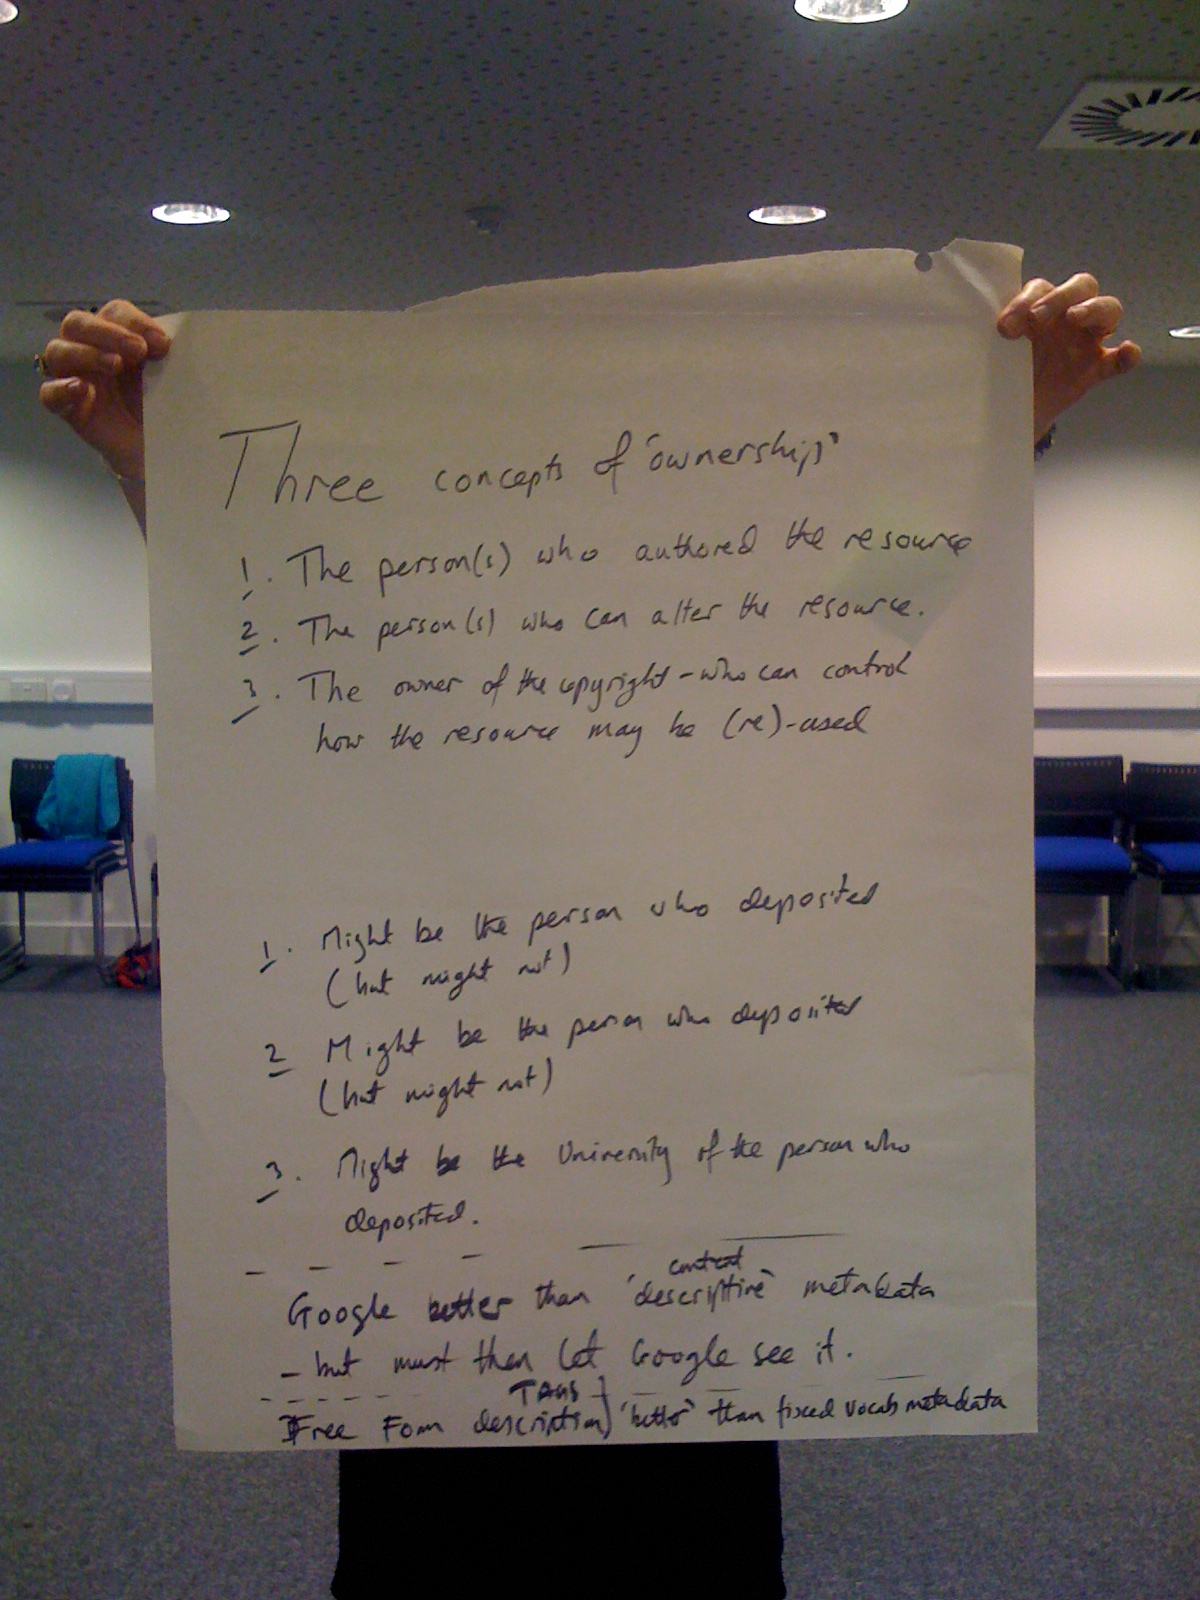 Three concepts of 'ownership'
1. The person(s) who authored the resource
2. The person(s) who can alter the resource.
3. The owner of the copyright - who can control
how the resource may be (re)-used
1. Might be the person who deposited
(but might not)
2 Might be the person who deposited
(but might not)
3. Might be the University of the person who
deposited.
content
Google better than 'descriptive' metadata
- but must then let Google see it.
TAGS
Free Form description) 'better' than fixed vocab metadata